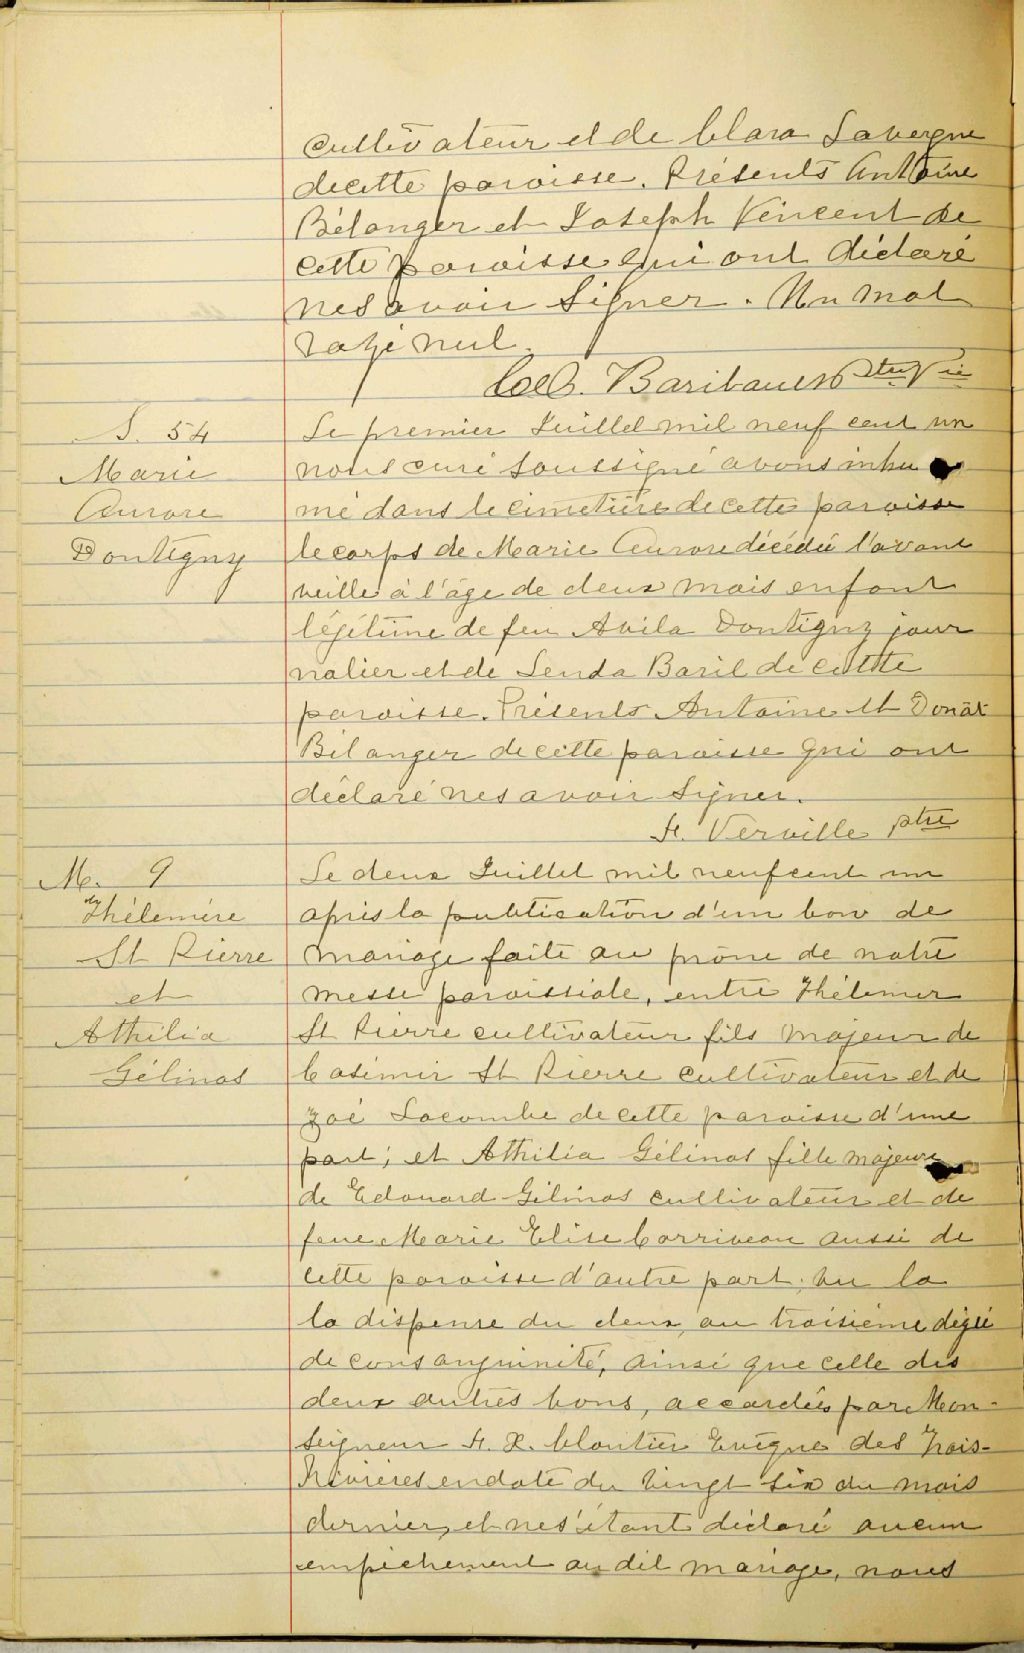 cultivateur et de Clara Lavergne
de cette paroisse. Présents Antoine
Bélanger et Joseph Vincent de
cette paroisse qui ont déclaré
ne savoir signer. Un mot
rayé nul.
Baribault Ptre Vic
S. 54
Marie
Aurore
Dontigny
Le premier Juillet mil neuf cent un
nous curé soussigné avons inhu
mé dans le cimetière de cette paroisse
le corps de Marie Aurore décédée l'avant
veille à l'âge de deux mois enfant
légitime de feu Avila Dontigny jour
nalier et de Lenda Baril de cette
paroisse. Présents Antoine et Donat
Bélanger de cette paroisse qui ont
déclaré ne savoir signer.
H. Verville ptre
M. 9
Thélemire
St Pierre
et
Athilia
Gélinas
Le deux Juillet mil neuf cent un
après la publication d'un ban de
mariage faite au prône de notre
messe paroissiale, entre Thélemir
St Pierre cultivateur fils majeur de
Casimir St Pierre cultivateur et de
Zoé Lacombe de cette paroisse d'une
part; et Athilia Gélinas fille majeure
de Edouard Gélinas cultivateur et de
feue Marie Elise Corriveau aussi de
cette paroisse d'autre part; vu la
la dispense du deux au troisième degré
de consanguinité, ainsi que celle des
deux autres bans, accordées par Mon-
seigneur F. X. Cloutier Evêque des Trois-
Rivières en date du vingt six du mois
dernier, et ne s'étant déclaré aucun
empêchement au dit mariage, nous